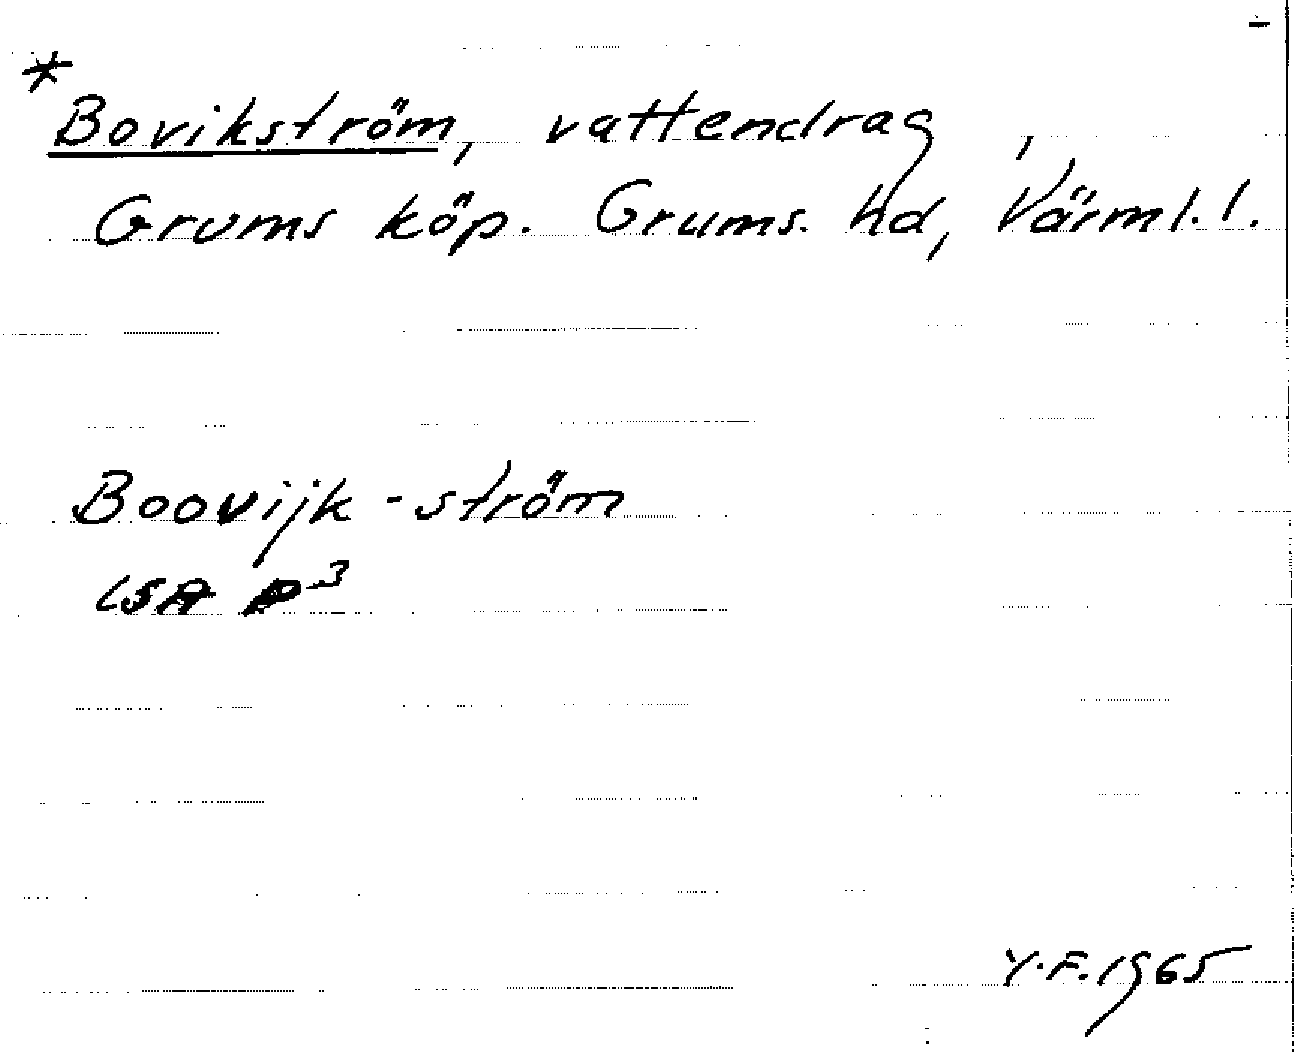 *
Bovikström, vattendrag,
Grums köp. Grums. hd, Värml. l.
Boovijk-ström
LSA P³
Y.F. 1965